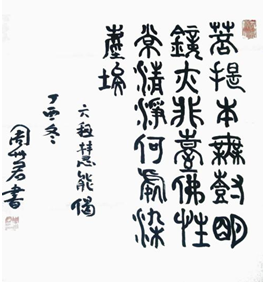 菩提本無樹明
鏡亦非臺佛性
常清淨何處染
塵埃
六祖慧能偈
丁酉冬
周君書